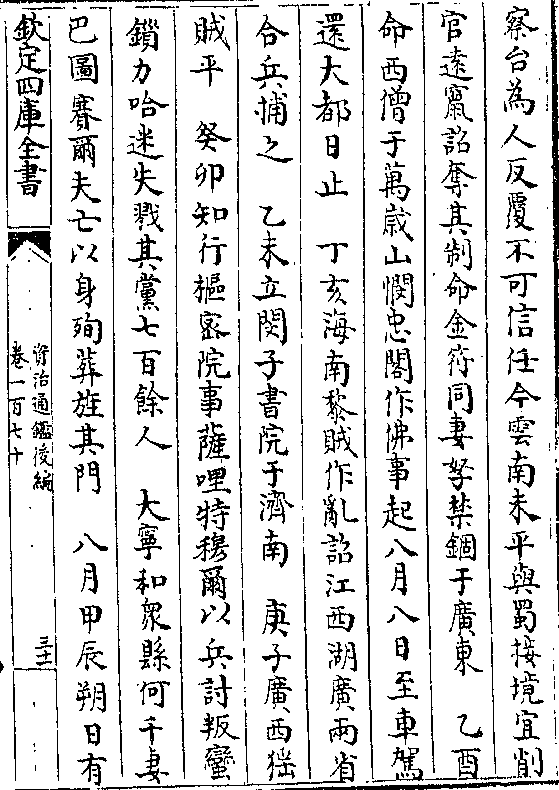 察台為人反覆不可信任今雲南未平與蜀接境宜削
官遠竄詔奪其制命金符同妻孥禁錮于廣東　乙酉
命西僧于萬歲山憫忠閣作佛事起八月八日至車駕
還大都日止　丁亥海南黎賊作亂詔江西湖廣兩省
合兵捕之　乙未立閔子書院于濟南　庚子廣西猺
賊平　癸卯知行樞密院事薩哩特穆爾以兵討叛蠻
鎖力哈迷失戮其黨七百餘人　大寧和衆縣何千妻
巴圖賽爾夫亡以身殉葬旌其門　八月甲辰朔日有
欽定四庫全書
資治通鑑後編
卷一百七十
三十一